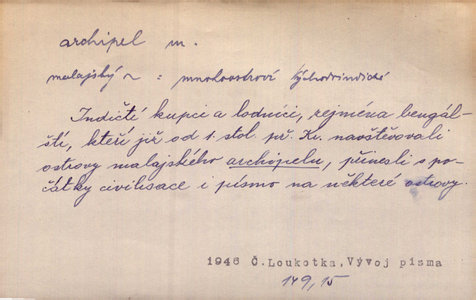 archipel m.
malajský ~ : mnohoostroví východoindické
Indičtí kupci a lodníci, zejména bengál-
ští, kteří již od 1. stol. př. Kr. navštěvovali
ostrovy malajského archipelu, přinesli s po-
čátky civilisace i písmo na některé ostrovy.
1946 Č.Loukotka,Vývoj písma
149,15